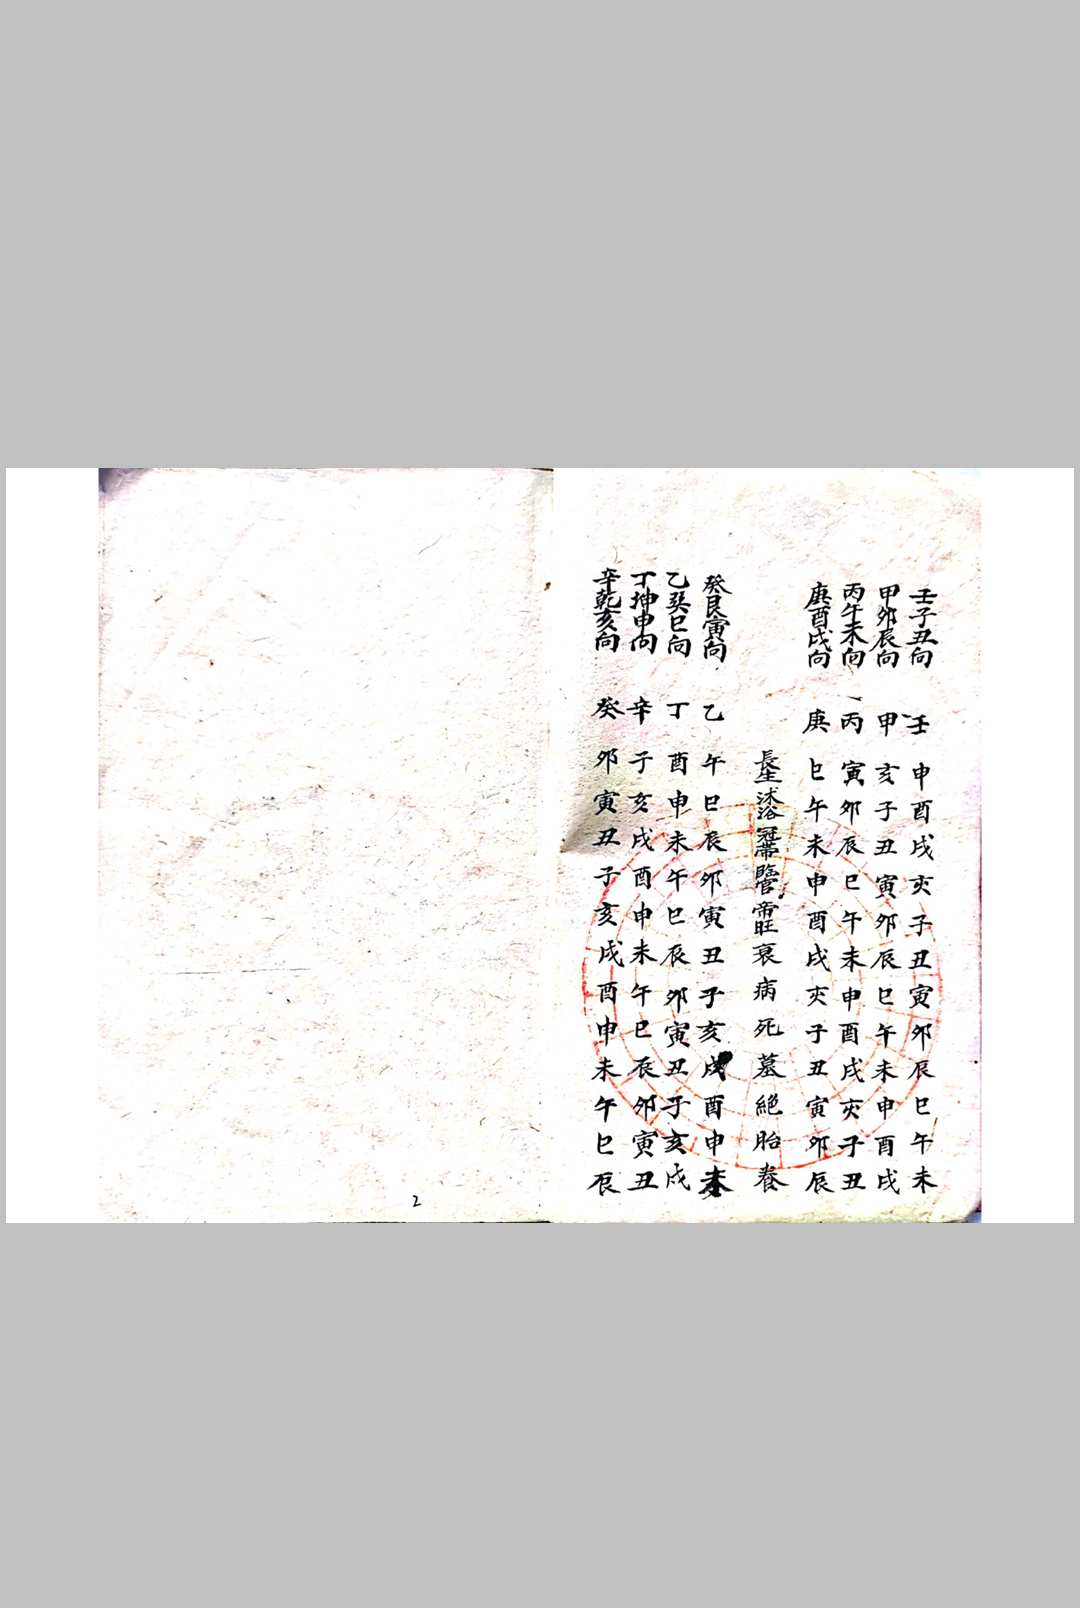 壬子丑向 壬 申酉戌亥子丑寅卯辰巳午未
甲卯辰向 甲 亥子丑寅卯辰巳午未申酉戌
丙午未向 丙 寅卯辰巳午未申酉戌亥子丑
庚酉戌向 庚 巳午未申酉戌亥子丑寅卯辰
長生沐浴冠帶臨官帝旺衰病死墓絕胎養
癸艮寅向 乙 午巳辰卯寅丑子亥戌酉申未
乙巽巳向 丁 酉申未午巳辰卯寅丑子亥戌
丁坤申向 辛 子亥戌酉申未午巳辰卯寅丑
辛乾亥向 癸 卯寅丑子亥戌酉申未午巳辰
2